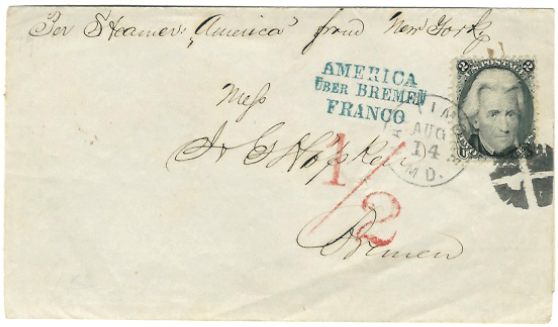 Per Steamer "America" from New York
AMERICA
ÜBER BREMEN
FRANCO
2 2
U.S. POSTAGE
Mess
AUG
14
MD.
1/2
Bremen